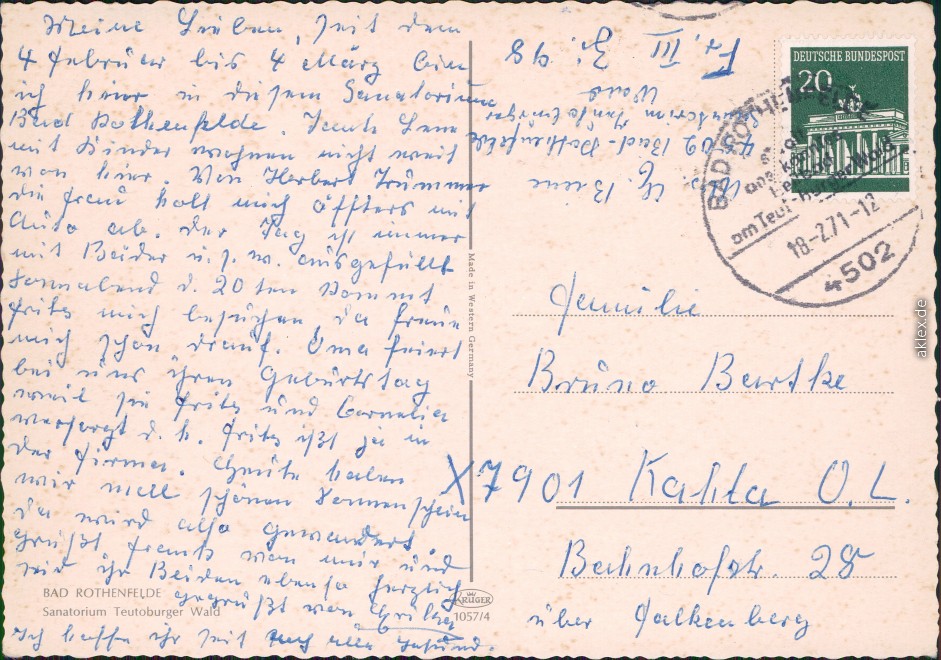 Meine Lieben, seit dem
4 Februar bis 4 März bin
ich hier in diesem Sanatorium
Bad Rothenfelde. Tante Lene
mit Kinder wohnen nicht weit
von hier. Von Herbert Trümmer
die Frau holt mich öffters mit
Auto ab. der Tag ist immer
mit Bäder u.s.w. ausgefüllt
Sonnabend d. 20ten kommt
Fritz mich besuchen da freue
mich schon drauf. Oma feiert
bei uns ihren Geburtstag
weil sie Fritz und Cornelia
versorgt d.h. Fritz ißt ja in
der Firma. Heute haben
wir mell schönen Sonnenschein
da wird also gewandert
Grüßt Frank von mir und
seid ihr Beiden ebenso herzlich
gegrüßt von
Ich hoffe ihr seit alle gesund.
BAD ROTHENFELDE
Sanatorium Teutoburger Wald
KRÜGER
1057/4
Made in Western Germany
4502 Bad-Rothenfelde
Sanatorium Teutoburger
Wald
Fr. III Zi. 98
DEUTSCHE BUNDESPOST
20
BAD ROTHENFELDE
am Teutoburger Wald
18-2.71-12
4502
Familie
Bruno Bartke
X7901 Kahla O.L.
Bahnhofstr. 28
über Falkenberg
aklex.de